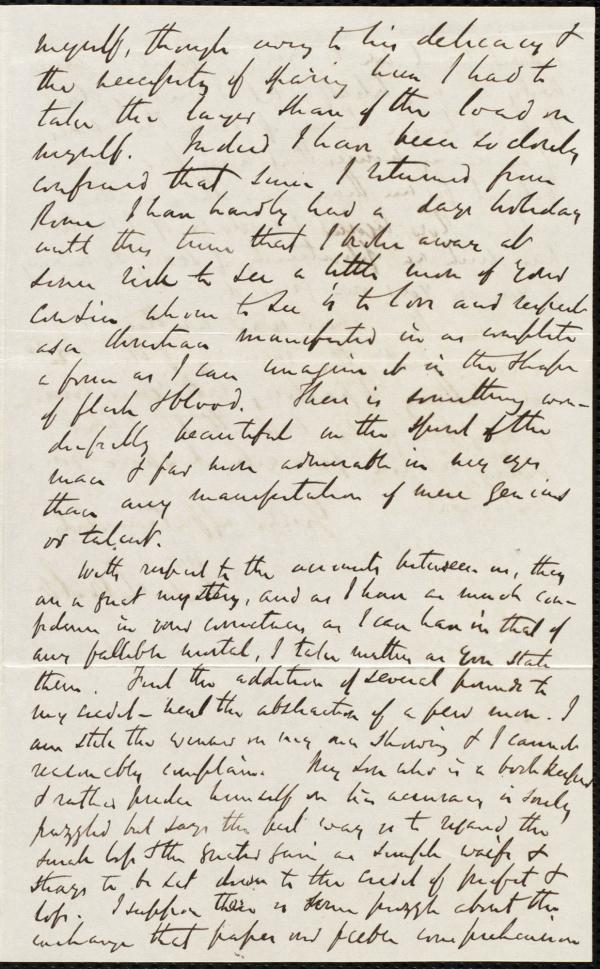 myself, though owing to his delicacy &
the necessity of sparing him I had to
take the larger share of the load on
myself. Indeed I have been so closely
confined that since I returned from
Rome I have hardly had a days holiday
until this time that I broke away at
some risk to see a little more of your
cousin whom to see is to love and respect
as a Christian manifested in as complete
a form as I can imagine it in the shape
of flesh & blood. There is something won-
derfully beautiful in the spirit of the
man & far more admirable in my eyes
than any manifestation of mere genius
or talent.
With respect to the accounts between us, they
are a great mystery, and as I have as much con-
fidence in your correctness as I can have in that of
any fallible mortal, I take matters as you state
them. First the addition of several pounds to
my credit - next the abstraction of a few more. I
am still the winner on my own showing & I cannot
reasonably complain. My son who is a bookkeeper
& rather prides himself on his accuracy is sorely
puzzled but says the best way is to regard the
small loss & the greater gain as simple waifs &
strays to be set down to the credit of profit &
loss. I suppose there is some puzzle about the
exchange that paper and feeble comprehension